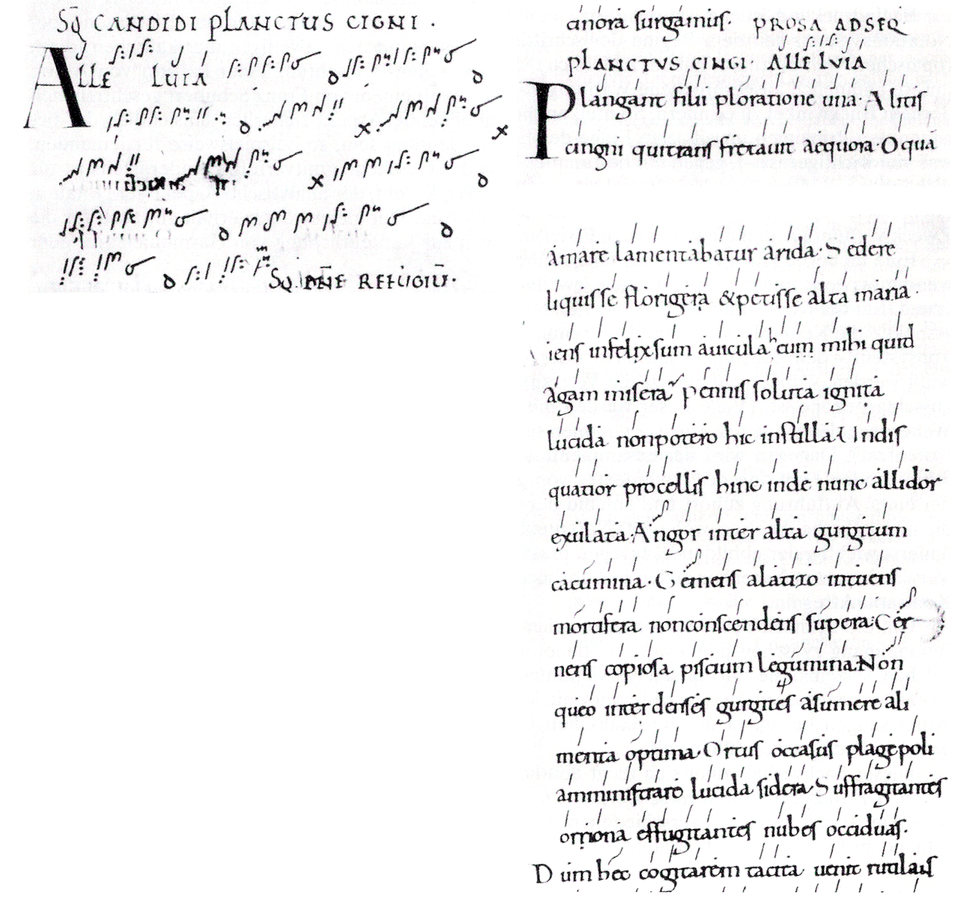 SQ̄ CANDIDI PLANCTUS CIGNI .
ALLE LUIA
x
x
x
SQ. REFUGIU̅.
canora surgamus. PROSA AD SEQ̄
PLANCTVS CINGI . ALLE LVIA
Plangant filii ploratione una . Alitis
cingni qui trans fretauit aequora . O quā
amare lamentabatur arida . Se dere
liquisse florigera & petisse alta maria .
iens infelix sum auicula cum mihi quid
agam misera pennis soluta ignita
lucida non potero hic instilla Undis
quatior procellis hinc inde nunc allidor
exulata . Angor inter alta gurgitum
cacumina . Gemens alatizo intuens
mortifera non conscendens supera . Cer
nens copiosa piscium legumina . Non
queo inter denses gurgites asumere ali
menta optima . Ortus occasus plage poli
amministrare lucida sidera . Suffragitantes
orriona effugitantes nubes occiduas .
Dum hec cogitarem tacita uenit rutilais